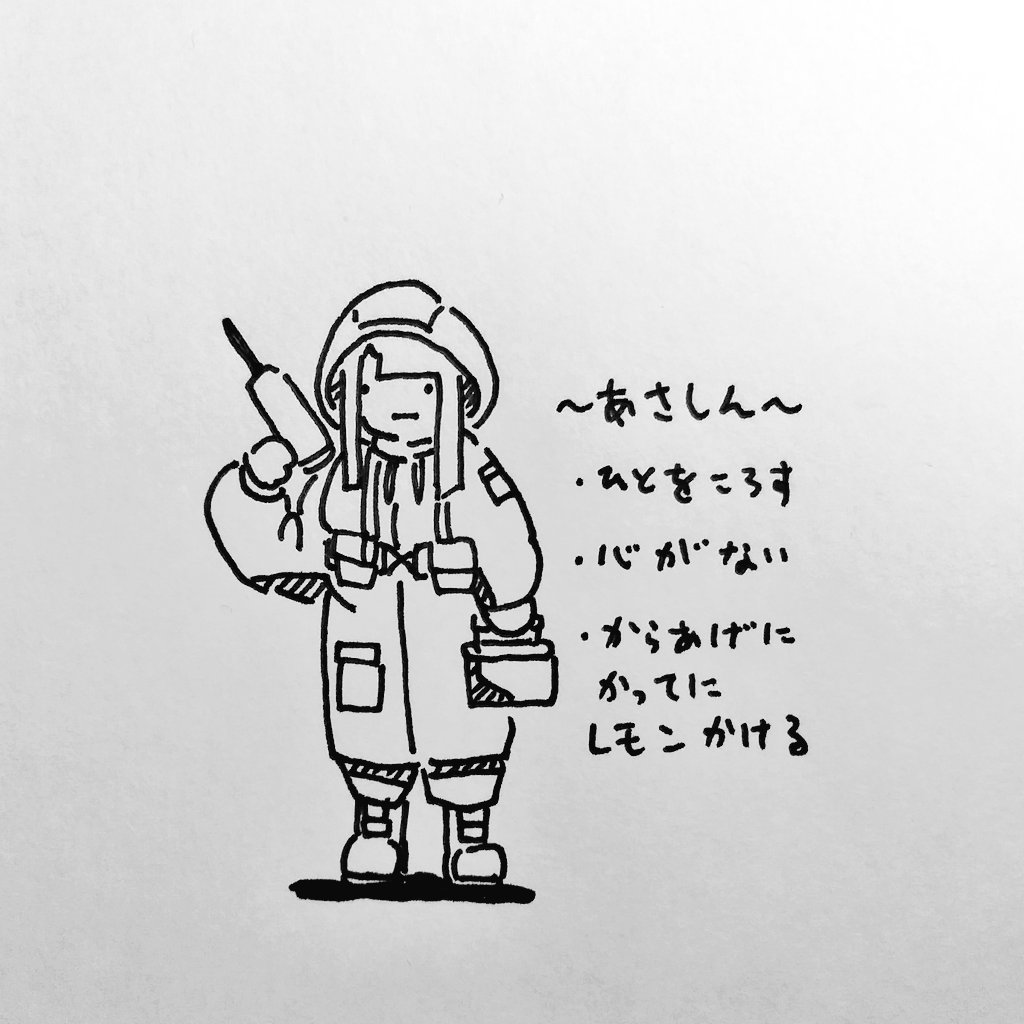 ～あさしん～
・ひとをころす
・心がない
・からあげに
かってに
レモンかける